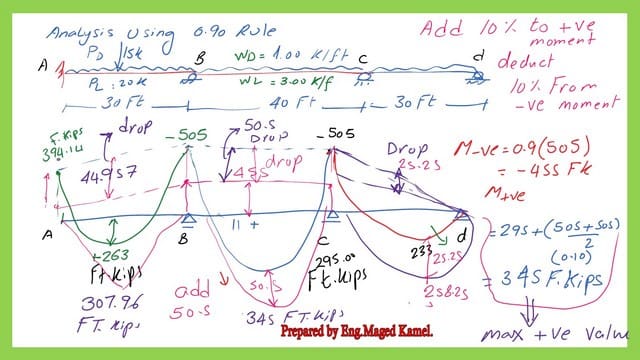 Analysis Using 0.90 Rule
Add 10% to +ve
moment
deduct
10% From
-ve moment
PD 15k
A
B
WD = 1.00 K/ft
C
d
PL: 20k
WL = 3.00 K/f
30 Ft
40 Ft
30 Ft
Ft.Kips
394.14
drop
-505
50.5
Drop
-505
Drop
25.25
M-ve = 0.9(505)
= -455 FK
M+ve
44.957
455
drop
= 295+(505+505)
2
(0.10)
= 345 F.Kips
A
B
11 +
C
d
+263
Ft.Kips
295.00
Ft.Kips
233
25.25
258.25
307.96
FT.Kips
add
50.5
50.5
345 FT.Kips
max +ve value
Prepared by Eng.Maged Kamel.